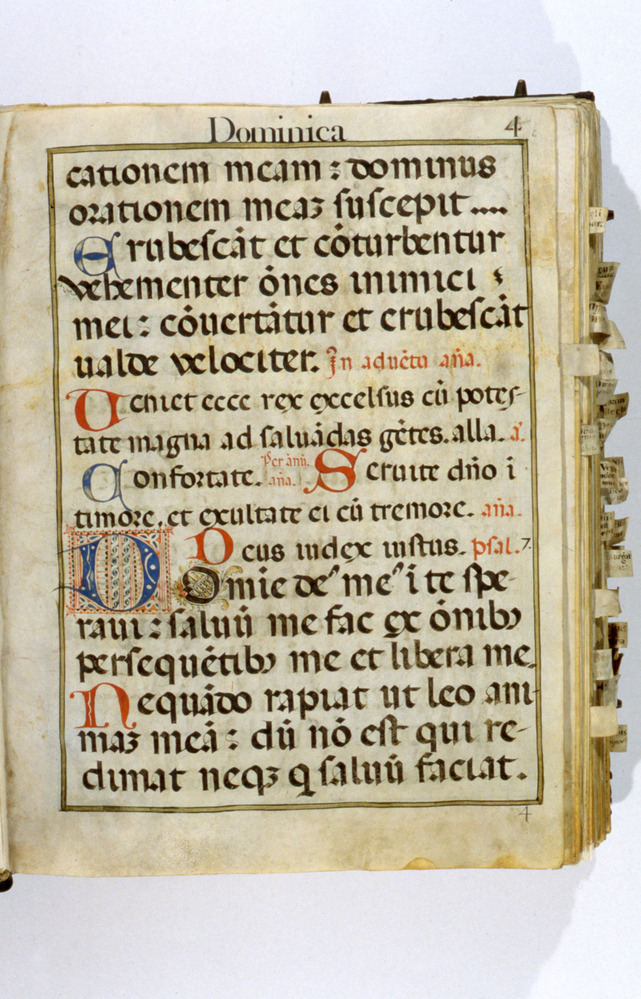 Dominica 4
cationem meam : dominus
orationem meaꝫ suscepit....
Erubescāt et cōturbentur
vehementer ōnes inimici
mei : cōuertātur et erubescāt
ualde velociter. In aduētu aña.
Ueniet ecce rex excelsus cū potes-
tate magna ad saluādas gētes. alla. a.
Confortate. Per ann̄. aña. Seruite dño ī
timore, et exultate ei cū tremore. aña.
Deus iudex iustus. psal. 7.
Domīe de⁹ me⁹ ī te spe-
raui : saluū me fac ex ōnibꝰ
persequētibꝰ me et libera me.
Nequādo rapiat ut leo ani-
maꝫ meā : dū nō est qui re-
dimat neqꝫ q saluū faciat.
4